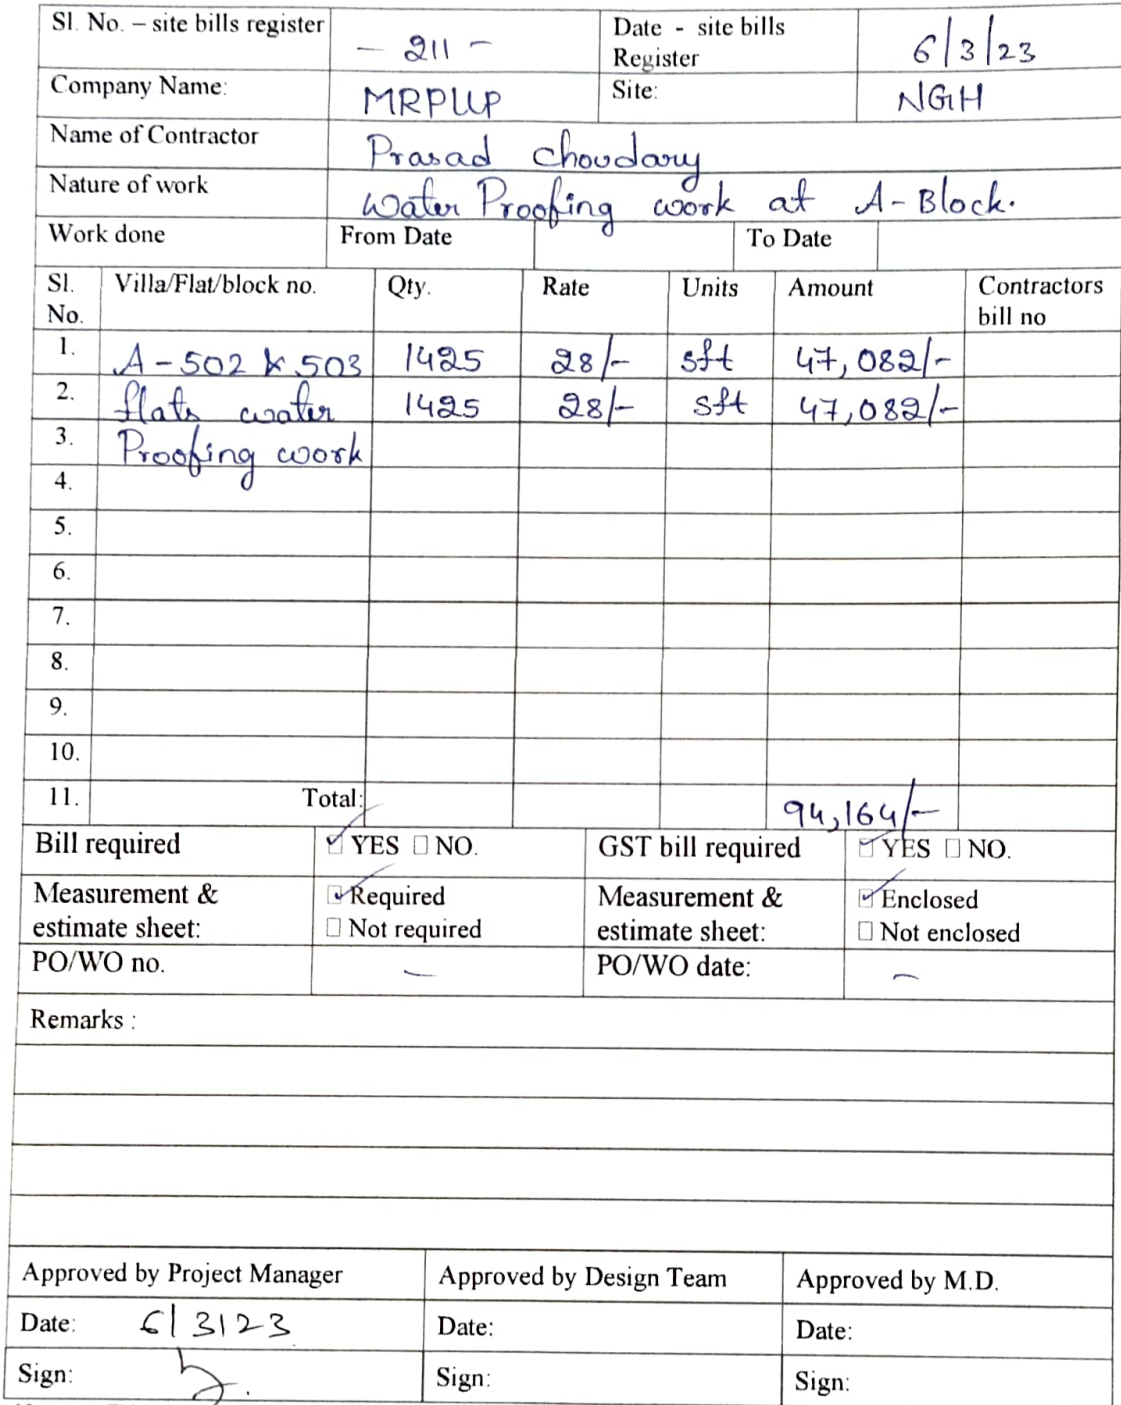 Sl. No. – site bills register - 211 - Date - site bills Register 6/3/23
Company Name: MRPLLP Site: NGH
Name of Contractor Prasad choudary
Nature of work water Proofing work at A-Block.
Work done From Date To Date
Sl. No. Villa/Flat/block no. Qty. Rate Units Amount Contractors bill no
1. A-502 & 503 1425 28/- sft 47,082/-
2. flats water 1425 28/- sft 47,082/-
3. Proofing work
4.
5.
6.
7.
8.
9.
10.
11. Total: 94,164/-
Bill required ☑ YES ☐ NO. GST bill required ☑ YES ☐ NO.
Measurement & estimate sheet: ☑ Required Measurement & estimate sheet: ☑ Enclosed
☐ Not required ☐ Not enclosed
PO/WO no. – PO/WO date: –
Remarks :
Approved by Project Manager Approved by Design Team Approved by M.D.
Date: 6/3/23 Date: Date:
Sign: Sign: Sign: